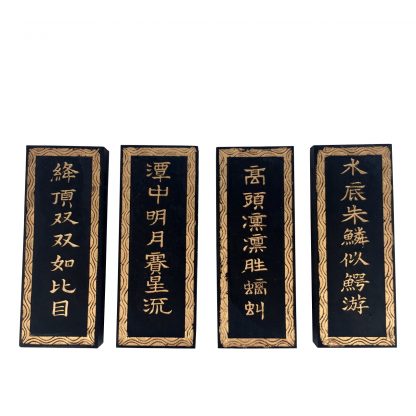 水底朱鱗似鰐游
髙頭凛凛胜螭虯
潭中明月賽星流
絳頂双双如比目